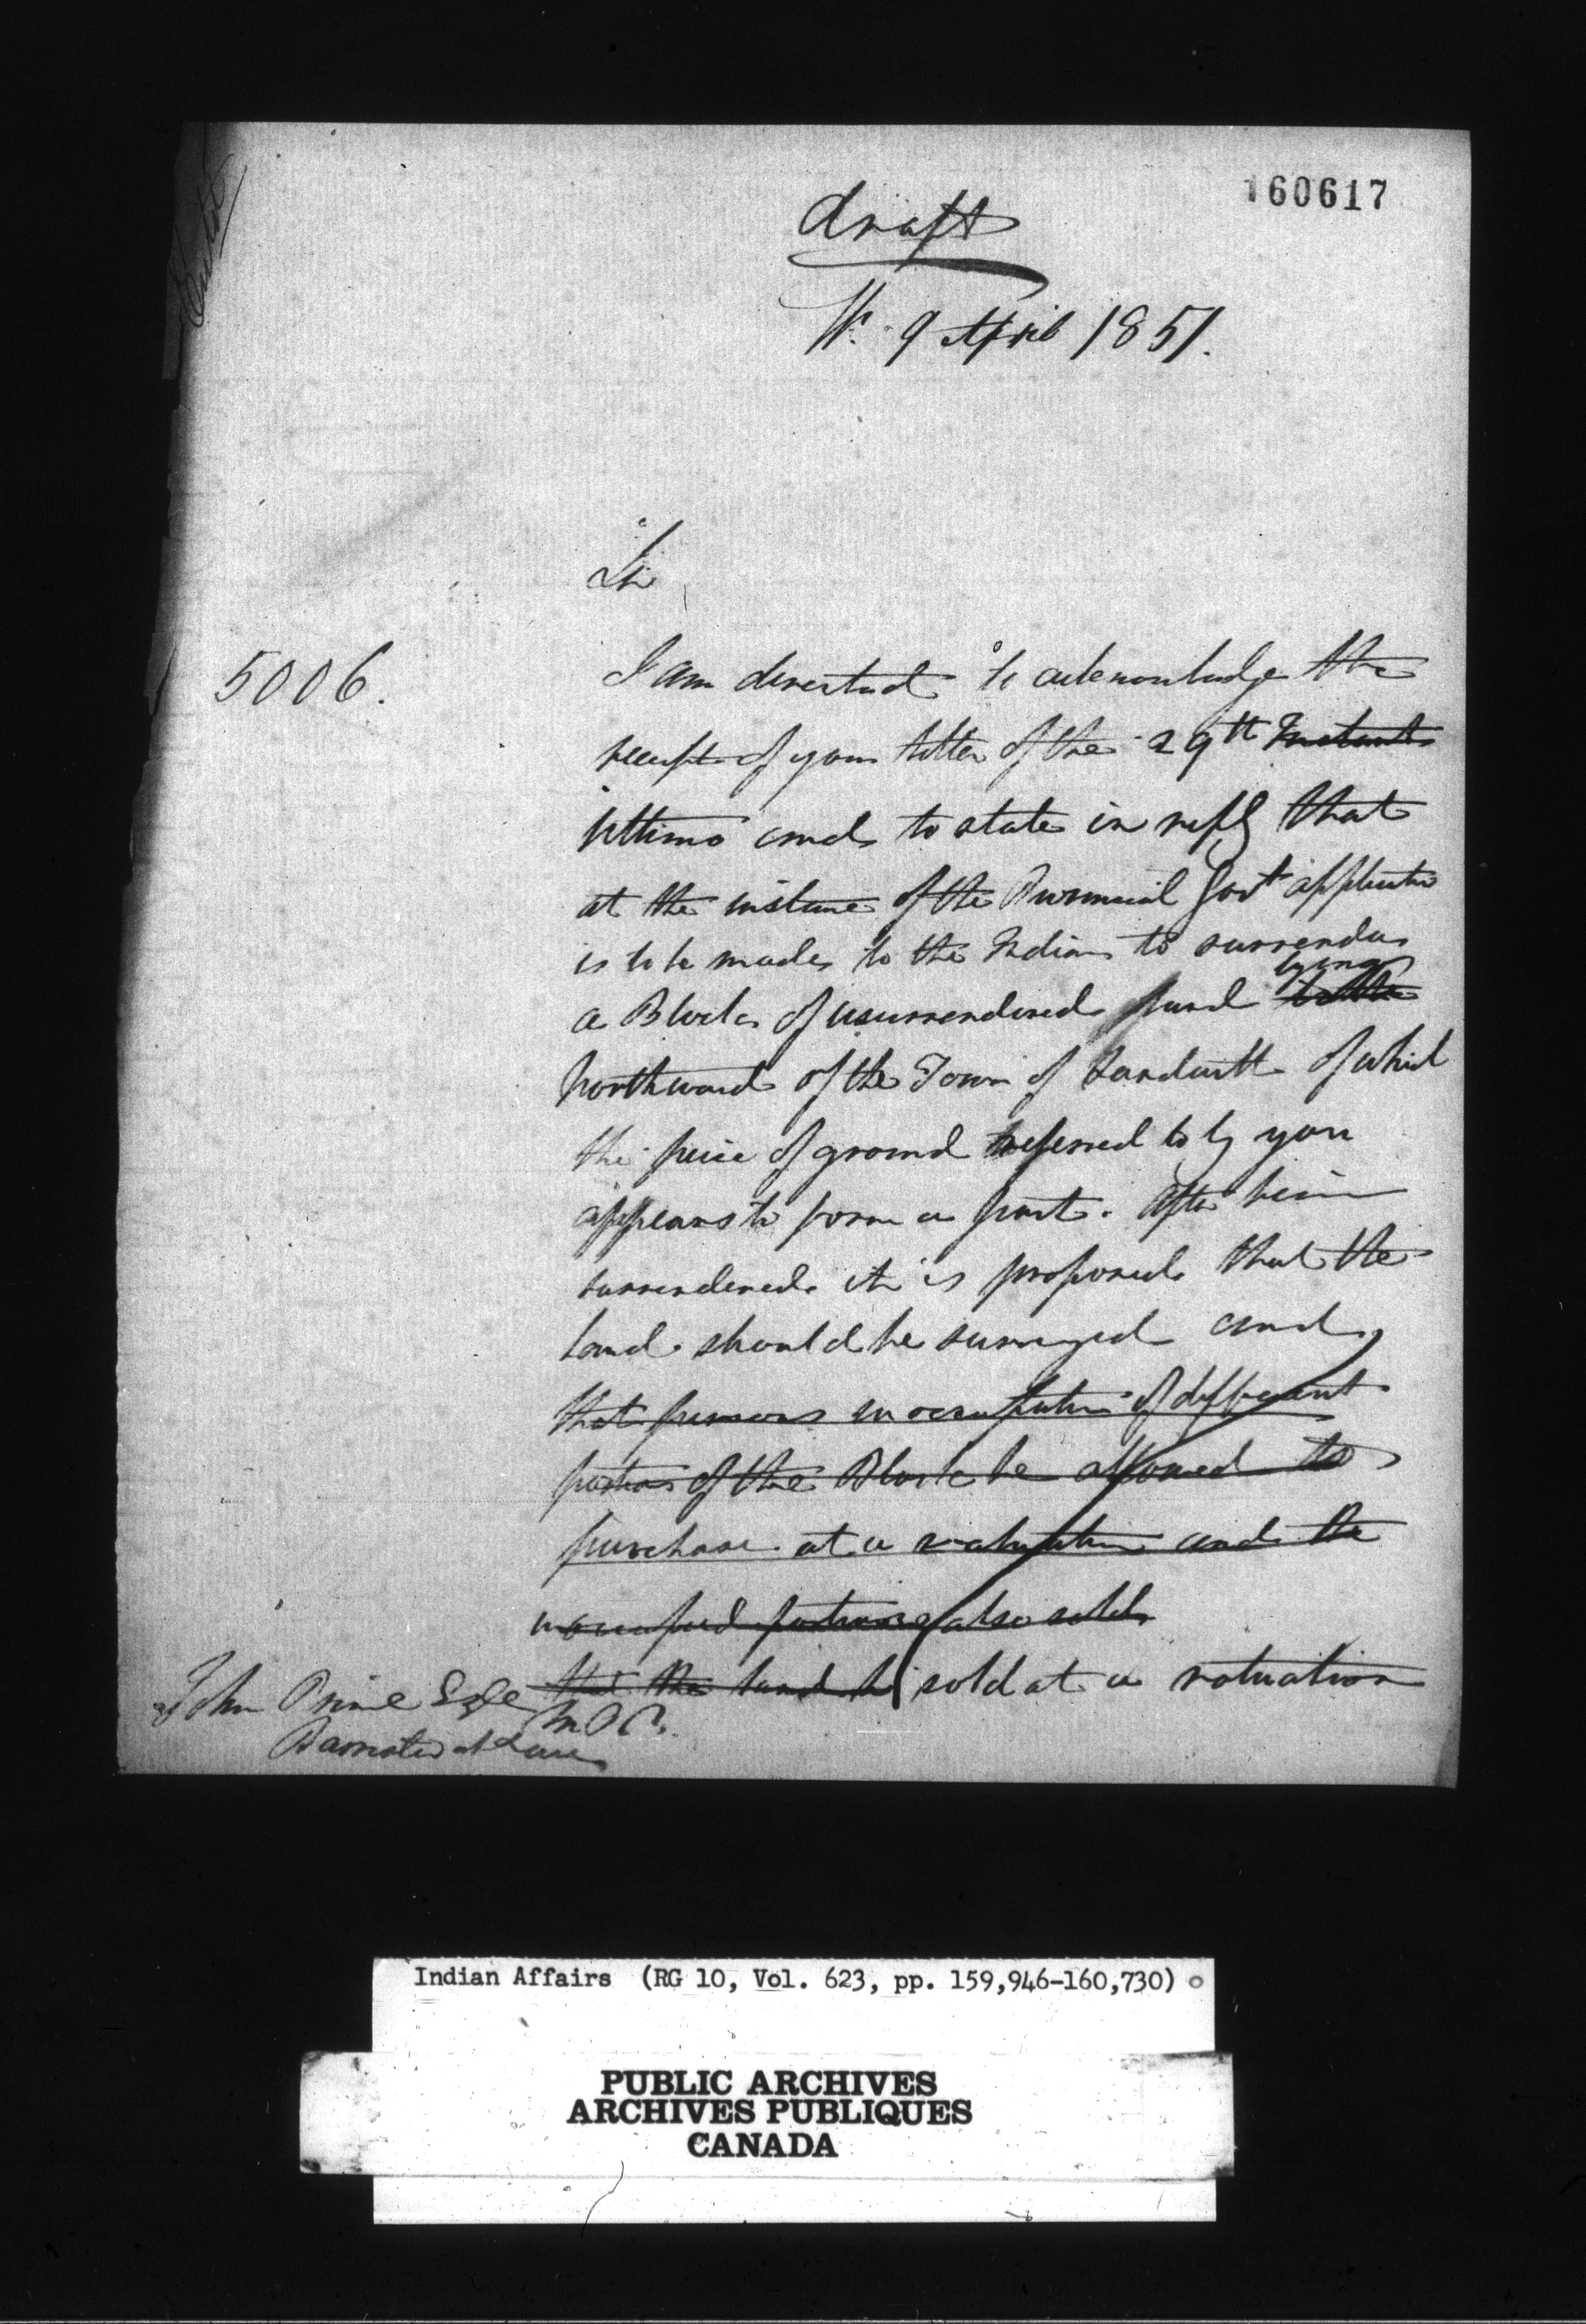 160617
draft
9 April 1851.
Sir
5006.
I am directed to acknowledge the
receipt of your letter of the 29th Instant
Ultimo and to state in reply that
at the instance of the Provincial Govt applicatn
is to be made to the Indians to surrender
lying
a Block of unsurrendered land to the
northward of the Town of Sandwich of which
the piece of ground referred to by you
appears to form a part. After being
surrendered it is proposed that the
land should be surveyed and
that persons in occupation of different
portions of the Block be allowed to
purchase at a valuation and the
unoccupied portions also sold
that the land be sold at a valuation
John Prince Esqre
M.P.P.
Barrister at Law
Indian Affairs (RG 10, Vol. 623, pp. 159,946-160,730)
PUBLIC ARCHIVES
ARCHIVES PUBLIQUES
CANADA